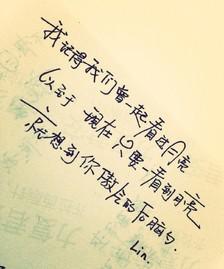 我记得我们曾一起看过月亮
以至于 现在 只要一看到月亮
就想到你傲人的后脑勺.
Lin.